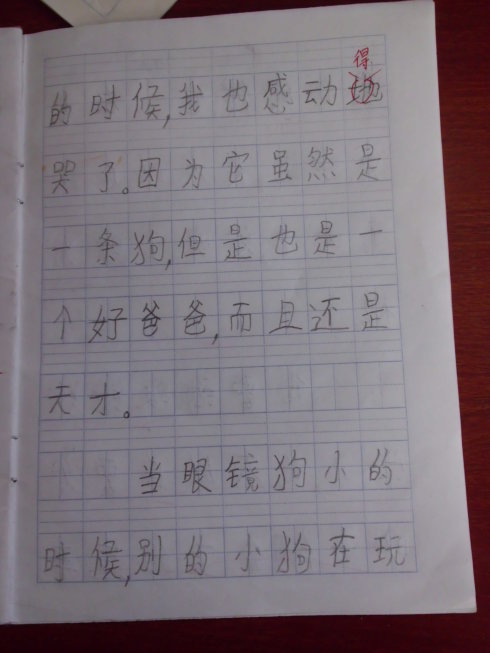 得
的时候,我也感动地
哭了。因为它虽然是
一条狗,但是也是一
个好爸爸,而且还是
天才。
当眼镜狗小的
时候,别的小狗在玩